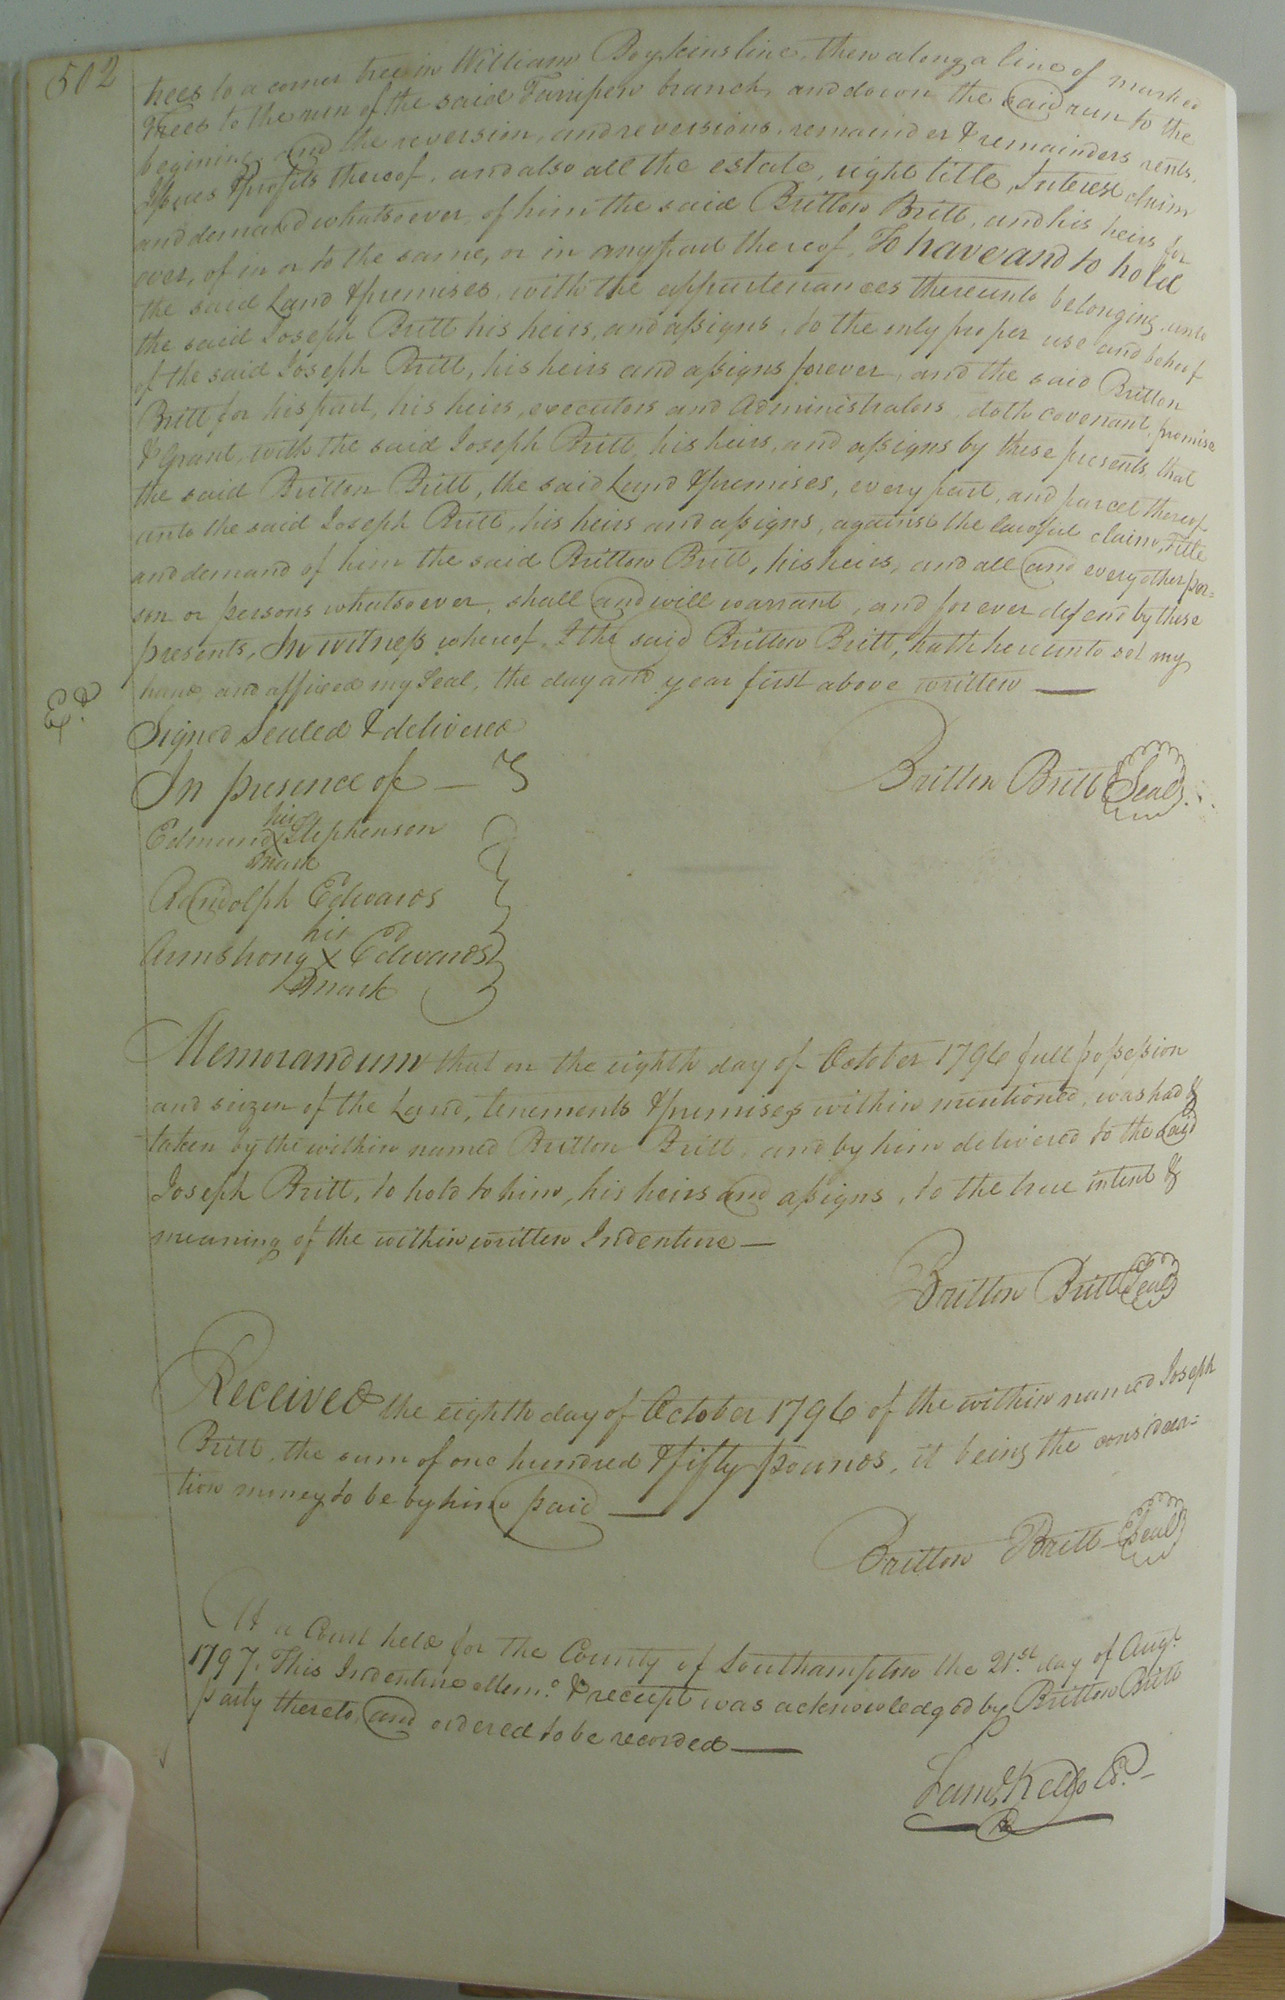 502
trees to a corner tree in William Boykins line, then along a line of marked
trees to the run of the said Tarripen branch, and down the said run to the
begining, and the reversion, and reversions, remainder & remainders rents,
Issues & profits thereof, and also all the estate, right title, Interest claim
and demand whatsoever, of him the said Britton Britt, and his heirs for
ever, of in or to the same, or in any part thereof, To have and to hold
the said Land & premises, with the appurtenances thereunto belonging, unto
the said Joseph Britt his heirs, and assigns, to the only proper use and behoof
of the said Joseph Britt, his heirs and assigns forever, and the said Britton
Britt for his part, his heirs, executors and Administrators, doth covenant, promise
& Grant, with the said Joseph Britt, his heirs, and assigns by these presents, that
the said Britton Britt, the said Land & premises, every part, and parcel thereof
unto the said Joseph Britt, his heirs and assigns, against the lawful claim, Title
and demand of him the said Britton Britt, his heirs, and all and every other per=
son or persons whatsoever, shall and will warrant, and forever defend by these
presents, In witness whereof, I the said Britton Britt, hath hereunto set my
hand, and affixed my Seal, the day and year first above written —
Ed
Signed Sealed & delivered
In presence of —
Britton Britt Seal
his
Edmund X Stephenson
mark
Randolph Edwards
his
Armstrong X Edwards
mark
Memorandum that on the eighth day of October 1796 full possession
and seizen of the Land, tenements & premises within mentioned, was had &
taken by the within named Britton Britt, and by him delivered to the said
Joseph Britt, to hold to him, his heirs and assigns, to the true intent &
meaning of the within written Indenture —
Britton Britt Seal
Received the eighth day of October 1796 of the within named Joseph
Britt, the sum of one hundred & fifty pounds, it being the considera=
tion money to be by him paid —
Britton Britt Seal
At a Court held for the County of Southampton the 21st day of Augt
1797. This Indenture Memo. & receipt was acknowledged by Britton Britt
party thereto, and ordered to be recorded —
Saml. Kello Cl.